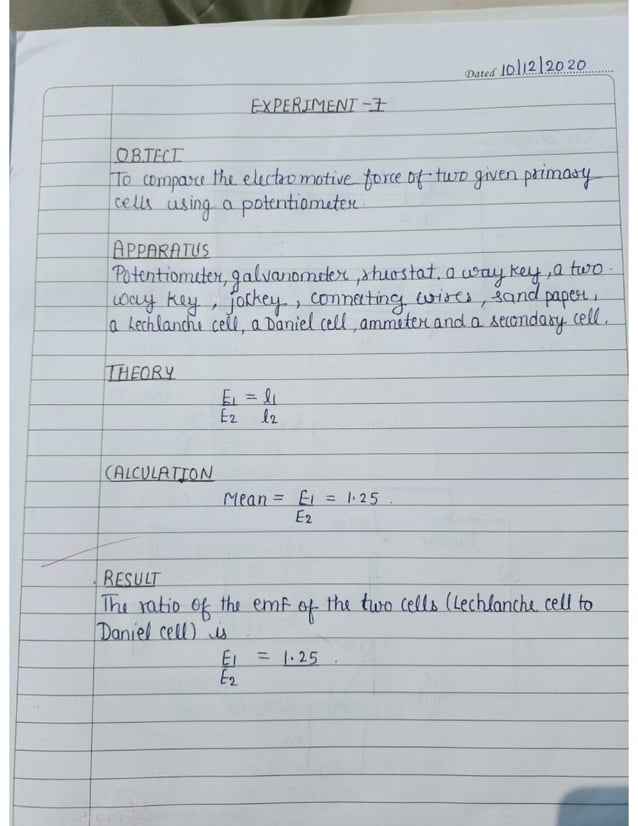 Dated 10/12/2020
EXPERIMENT - 7
OBJECT
To compare the electromotive force of two given primary
cells using a potentiometer.
APPARATUS
Potentiometer, galvanometer, rheostat, a way key, a two
way key, jockey, connecting wires, sand paper,
a Lechlanche cell, a Daniel cell, ammeter and a secondary cell.
THEORY
E1 = l1
E2 l2
CALCULATION
Mean = E1 = 1.25.
E2
RESULT
The ratio of the emf of the two cells (Lechlanche cell to
Daniel cell) is
E1 = 1.25.
E2